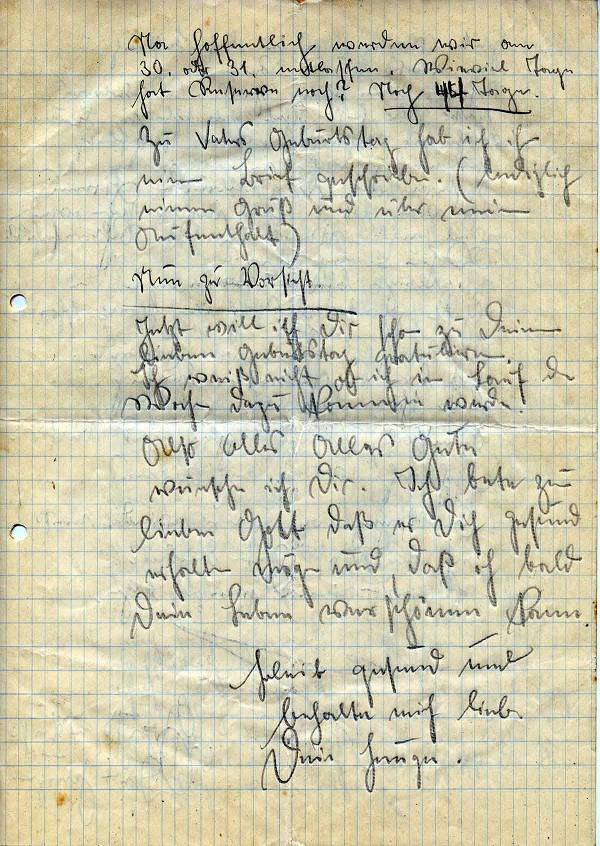 Na hoffentlich werden wir am
30. oder 31. entlassen. Wieviel Tage
hat Reserve noch? Noch Tage.
Zu Vaters Geburtstag hab ich ih
nen Brief geschrieben. (lediglich
einen Gruß und über mein
Aufenthalt)
Nun zu Vorsicht.
Jetzt will ich Dir schon zu Deinem
lieben Geburtstag gratulieren.
Ich weiß nicht ob ich im Lauf der
Woche dazu kommen werde.
Also alles alles Gute
wünsche ich Dir. Ich bete zu
lieben Gott daß er Dich gesund
erhalten möge und, daß ich bald
Dein Leben verschönern kann.
bleib gesund und
behalte mich lieb.
Dein